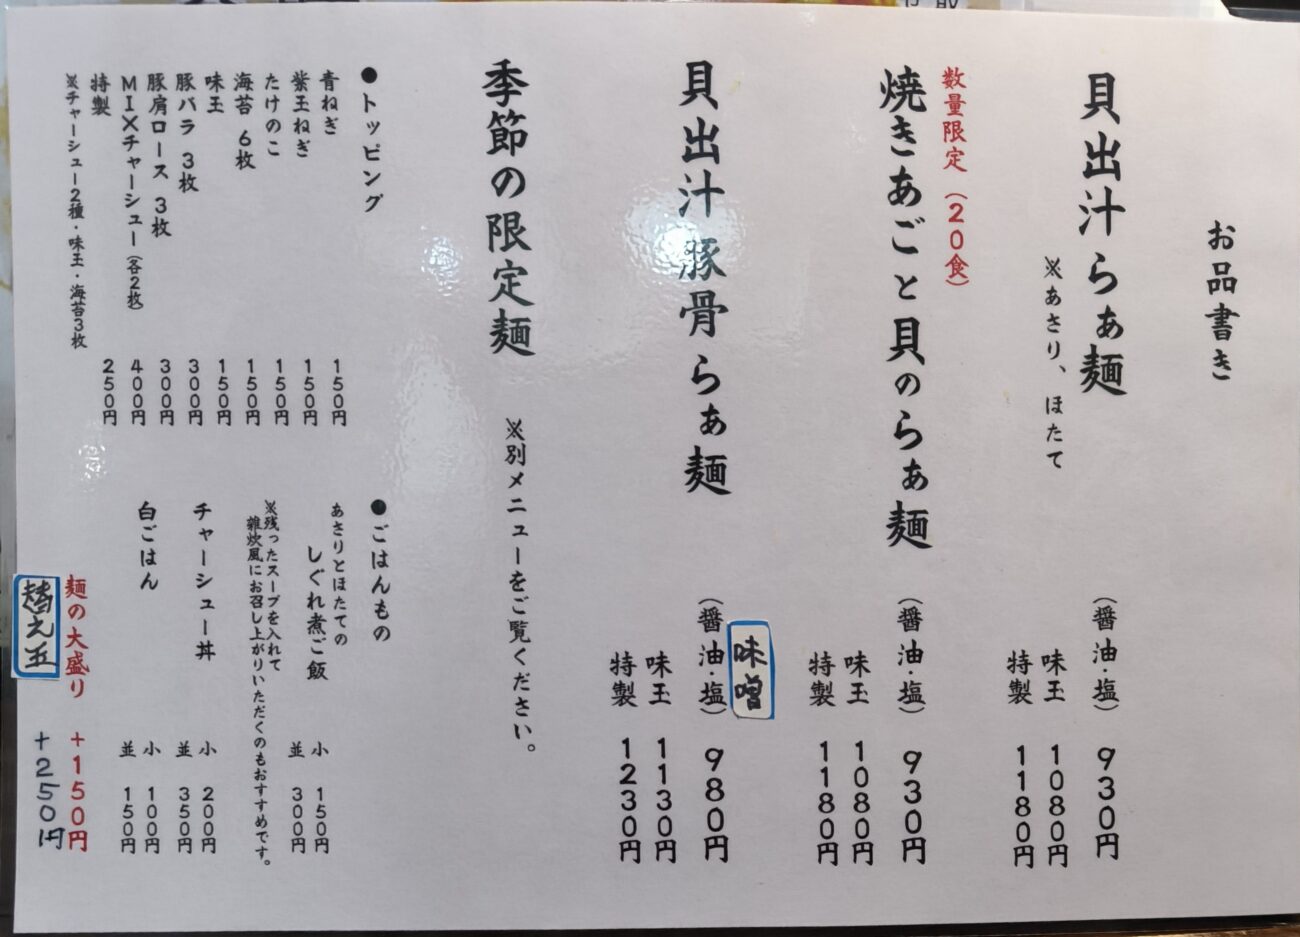 お品書き
貝出汁らぁ麺
※あさり、ほたて
（醤油・塩） 930円
味玉 1080円
特製 1180円
数量限定（20食）
焼きあごと貝のらぁ麺
（醤油・塩） 930円
味玉 1080円
特製 1180円
貝出汁 豚骨らぁ麺
味噌
（醤油・塩） 980円
味玉 1130円
特製 1230円
季節の限定麺 ※別メニューをご覧ください。
●トッピング
青ねぎ 150円
紫玉ねぎ 150円
たけのこ 150円
海苔 6枚 150円
味玉 150円
豚バラ 3枚 300円
豚肩ロース 3枚 300円
MIXチャーシュー（各2枚） 400円
特製 250円
※チャーシュー2種・味玉・海苔3枚
●ごはんもの
あさりとほたての
しぐれ煮ご飯 小 150円
並 300円
※残ったスープを入れて
雑炊風にお召し上がりいただくのもおすすめです。
チャーシュー丼 小 200円
並 350円
白ごはん 小 100円
並 150円
麺の大盛り +150円
替え玉 +250円